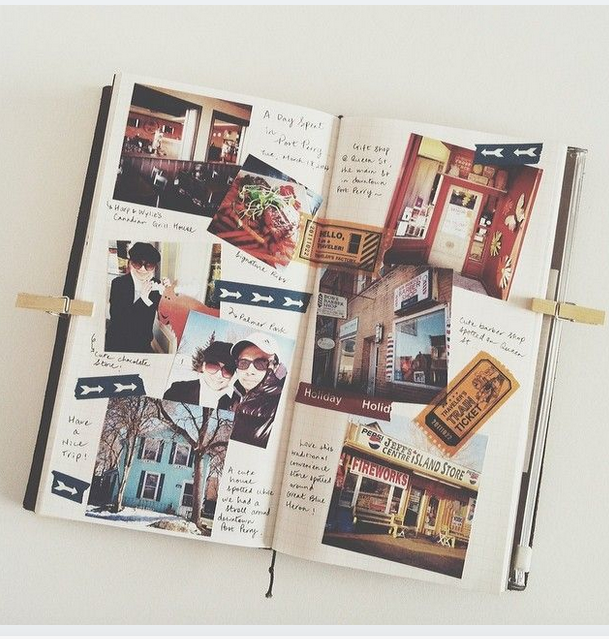 A Day Spent
in Port Perry
Tue, March
Harp & Wylie's
Canadian Grill House
Signature Ribs
Palmer Park
Cute chocolate
Store!
Have
a
Nice
Trip!
A cute
house
spotted while
we had a
stroll around
downtown
Port Perry!
Gift Shop
@ Queen St,
the main St
in downtown
Port Perry~
HELLO,
I'm a
TRAVELER!
TRAVELER'S FACTORY
Cute Barber Shop
spotted in Queen
St
BARBER
SHOP
Holiday Holid
TRAVELER'S
TRAIN
TICKET
Love this
traditional
convenience
store spotted
around
Great Blue
Heron!
PEPSI
JEFF'S
CENTRE ISLAND STORE
FIREWORKS